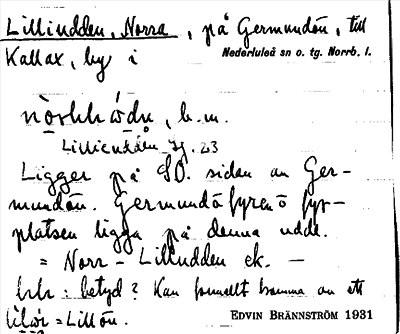 Lilludden, Norra, på Germundön, till
Kallax, by i Nederluleå sn o. tg. Norrb. l.
b.m.
23
Ligger på SO. sidan av Ger-
mundön. Germundöfyren o fyr-
platsen ligga på denna udde.
= Norr-Lilludden ek. —
betyd? Kan formellt komma av ett
= Lillön. EDVIN BRÄNNSTRÖM 1931